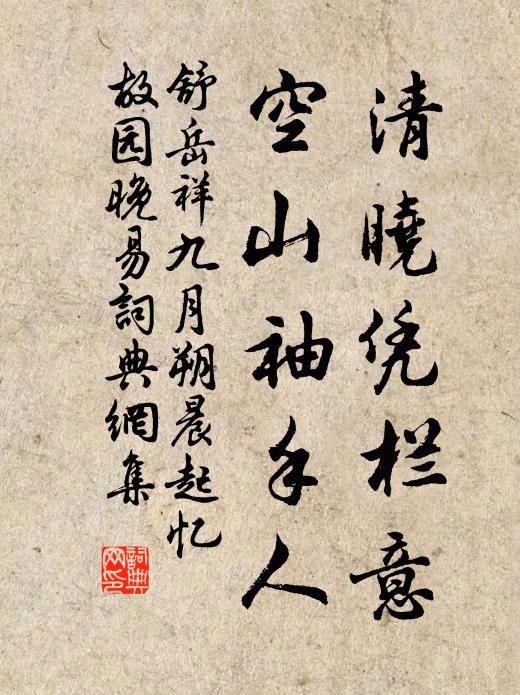 清曉凭栏意
空山袖手人
舒岳祥九月朔晨起忆
故园晚易詞典網集
詞典网印